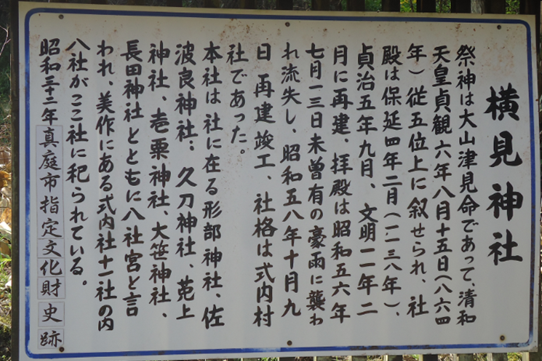 横見神社
祭神は大山津見命であって、清和
天皇貞観六年八月十五日(八六四
年)従五位上に叙せられ、社
殿は保延四年二月(一一三八年)、
貞治五年九月、文明一一年二
月に再建、拝殿は昭和五六年
七月一三日未曽有の豪雨に襲わ
れ流失し、昭和五八年十月九
日 再建竣工、社格は式内村
社であった。
本社は社に在る形部神社、佐
波良神社、久刀神社、菟上
神社、壱粟神社、大笹神社、
長田神社とともに八社宮と言
われ、美作にある式内社十一社の内
八社がここ社に祀られている。
昭和三十二年真庭市指定文化財 史跡